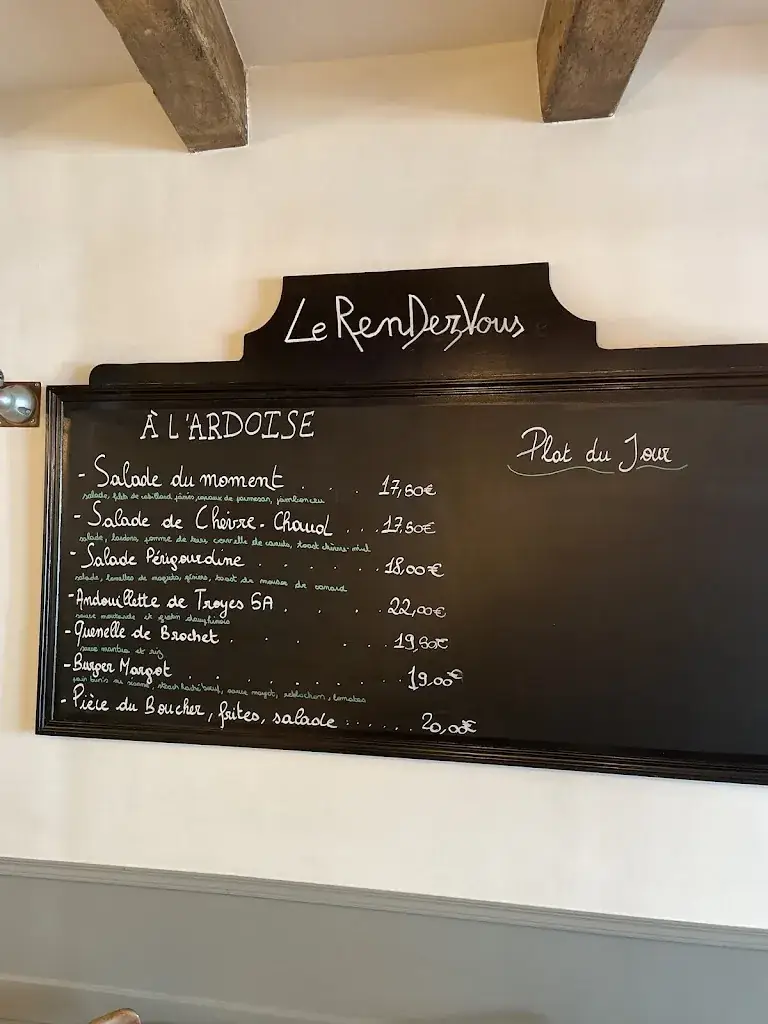 Le RenDezVous
À L'ARDOISE
- Salade du moment . . . 17,50€
salade, filets de cabillaud panés, copeaux de parmesan, jambon cru
- Salade de Chèvre-Chaud . . . 17,50€
salade, lardons, pomme de terre, toast chèvre-miel
- Salade Périgourdine . . . . . . 18,00€
salade, lamelles de magrets, gésiers, toast de mousse de canard
- Andouillette de Troyes 5A . . . . 22,00€
sauce moutarde et gratin dauphinois
- Quenelle de Brochet . . . . . . 19,50€
sauce nantua et riz
- Burger Margot . . . . . . . 19.00€
pain bun's au sésame, steak haché bœuf, sauce margot, reblochon, tomates
- Pièce du Boucher, frites, salade ...... 20,00€
Plat du Jour